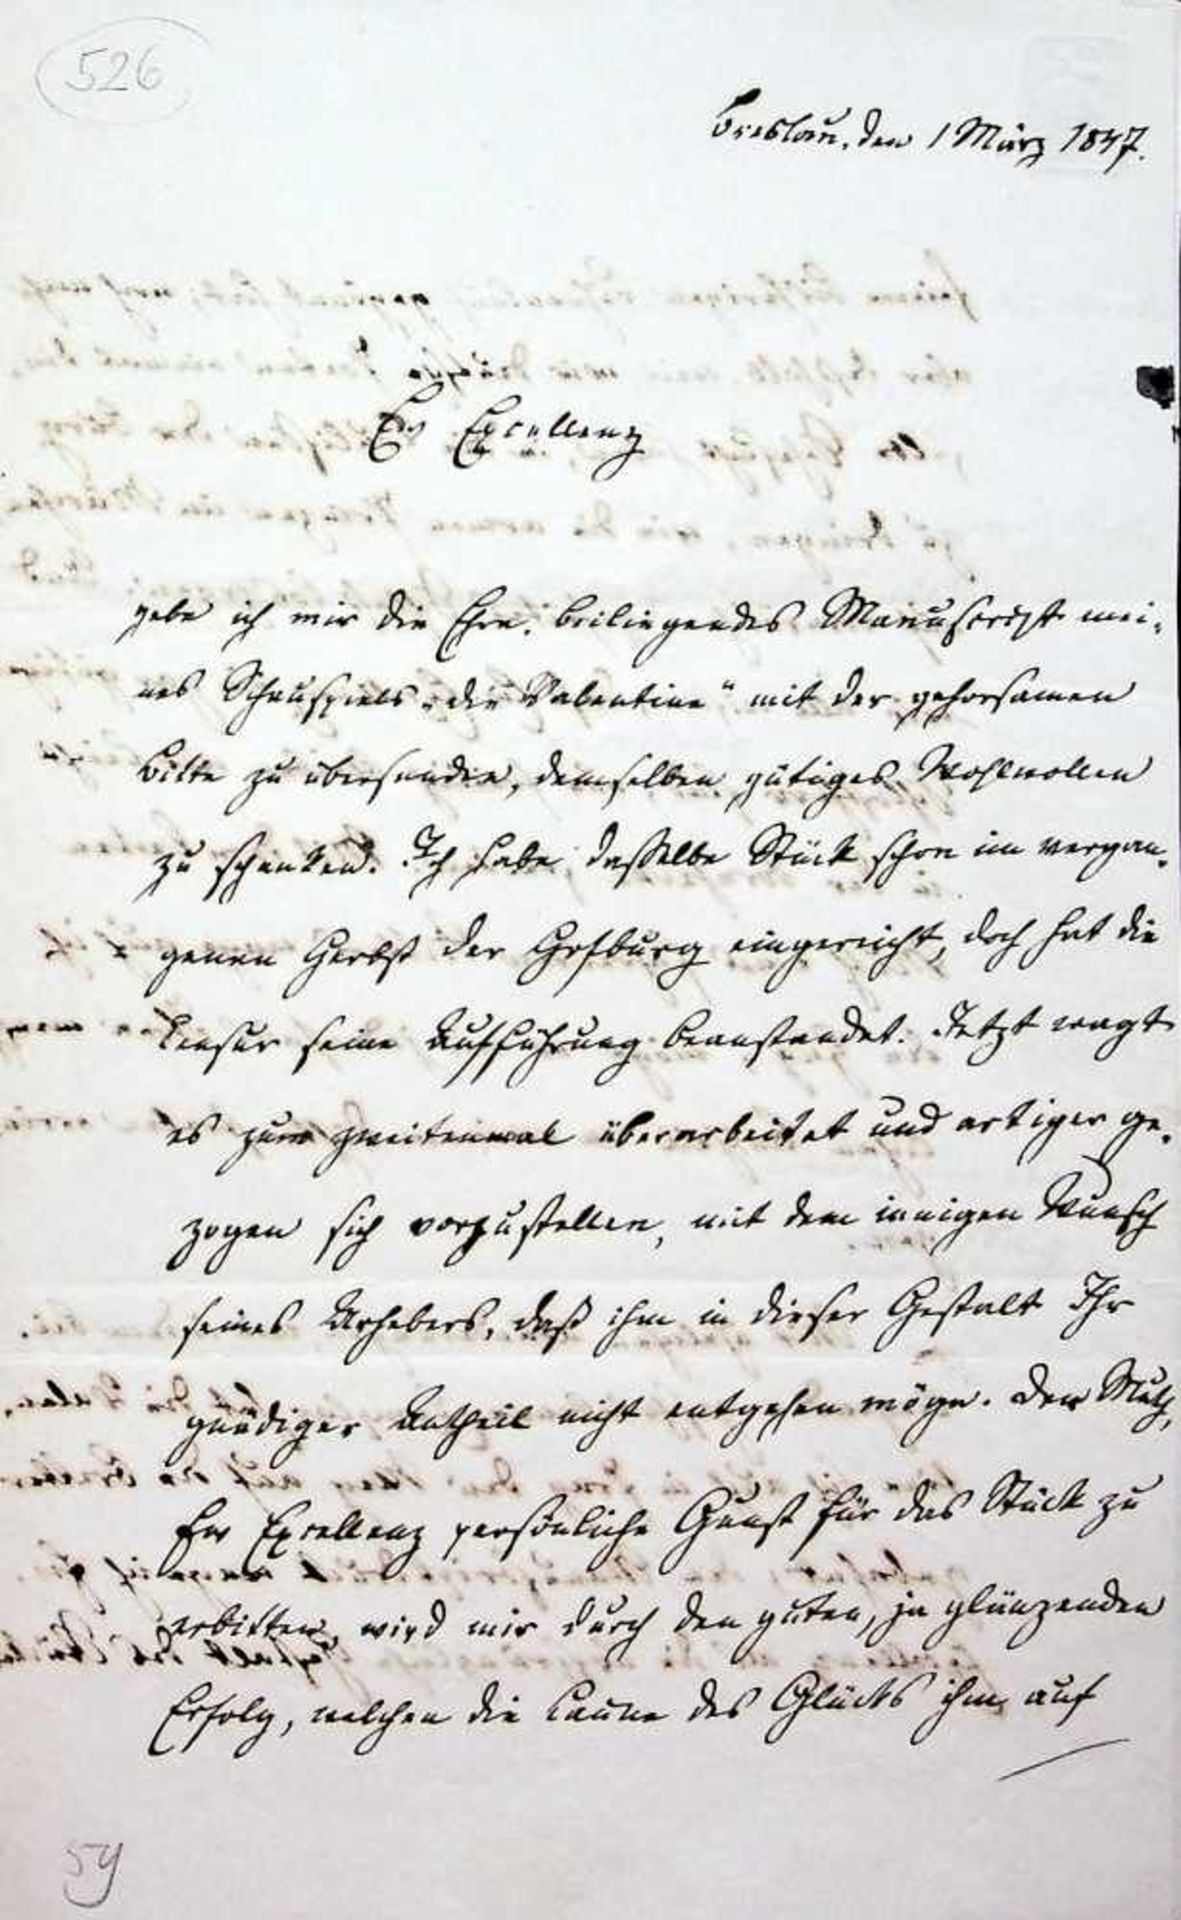 526
Breslau, den 1 März 1847.
Ew Excellenz
gebe ich mir die Ehre, beiliegendes Manuscript mei-
nes Schauspiels „die Valentine" mit der gehorsamen
Bitte zu übersenden, demselben gütiges Wohlwollen
zu schenken. Ich habe dasselbe Stück schon im vergan-
genen Herbst der Hofburg eingereicht, doch hat die
Censur seine Aufführung beanstandet. Jetzt wagt
es zum zweitenmal überarbeitet und artiger ge-
zogen sich vorzustellen, mit dem innigen Wunsch
seines Urhebers, daß ihm in dieser Gestalt Ihr
gnädiger Antheil nicht entgehen möge. Den Muth,
Ew Excellenz persönliche Gunst für das Stück zu
erbitten, wird mir durch den guten, ja glänzenden
Erfolg, welchen die Laune des Glücks ihm auf
59